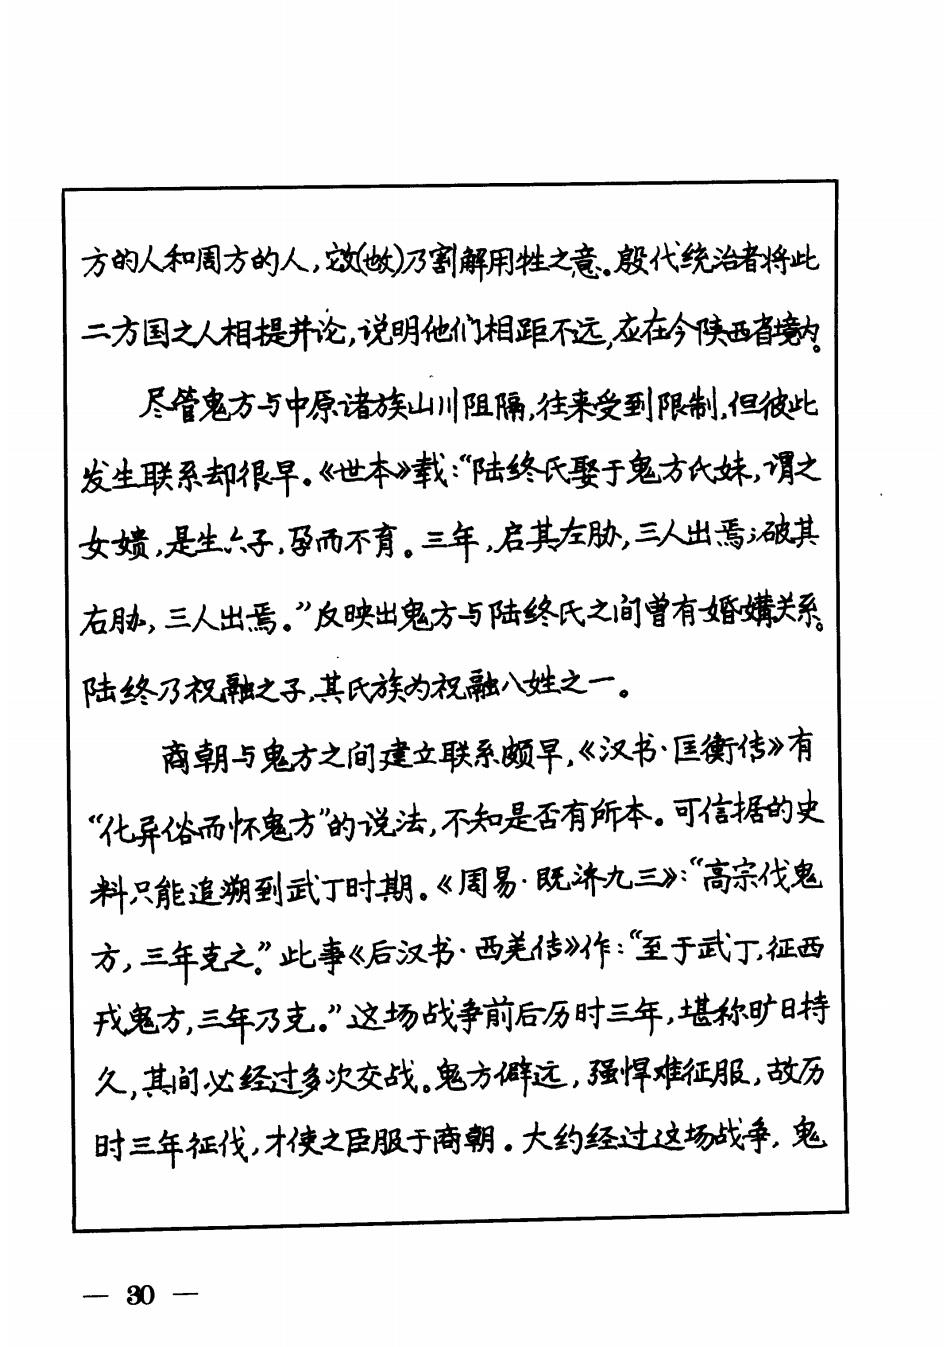 方的人和周方的人,𢼸(𢻫)乃割解用牲之意。殷代统治者将此
二方国之人相提并论,说明他们相距不远,应在今陕西省境内。
尽管鬼方与中原诸族山川阻隔,往来受到限制,但彼此
发生联系却很早。《世本》载:“陆终氏娶于鬼方氏妹,谓之
女嬇,是生六子,孕而不育。三年,启其左胁,三人出焉;破其
右胁,三人出焉。”反映出鬼方与陆终氏之间曾有婚媾关系。
陆终乃祝融之子,其氏族为祝融八姓之一。
商朝与鬼方之间建立联系颇早,《汉书·匡衡传》有
“化异俗而怀鬼方”的说法,不知是否有所本。可信据的史
料只能追溯到武丁时期。《周易·既济九三》:“高宗伐鬼
方,三年克之。”此事《后汉书·西羌传》作:“至于武丁,征西
戎鬼方,三年乃克。”这场战争前后历时三年,堪称旷日持
久,其间必经过多次交战。鬼方僻远,强悍难征服,故历
时三年征伐,才使之臣服于商朝。大约经过这场战争,鬼
— 30 —